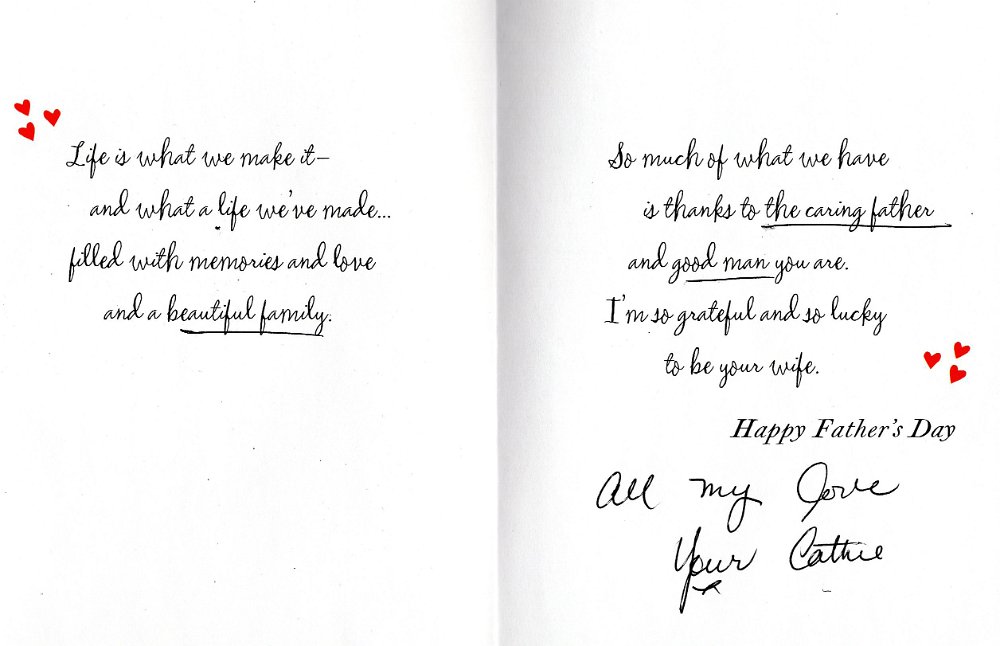 Life is what we make it—
and what a life we've made...
filled with memories and love
and a beautiful family.
So much of what we have
is thanks to the caring father
and good man you are.
I'm so grateful and so lucky
to be your wife.
Happy Father's Day
All my love
Your Cathie